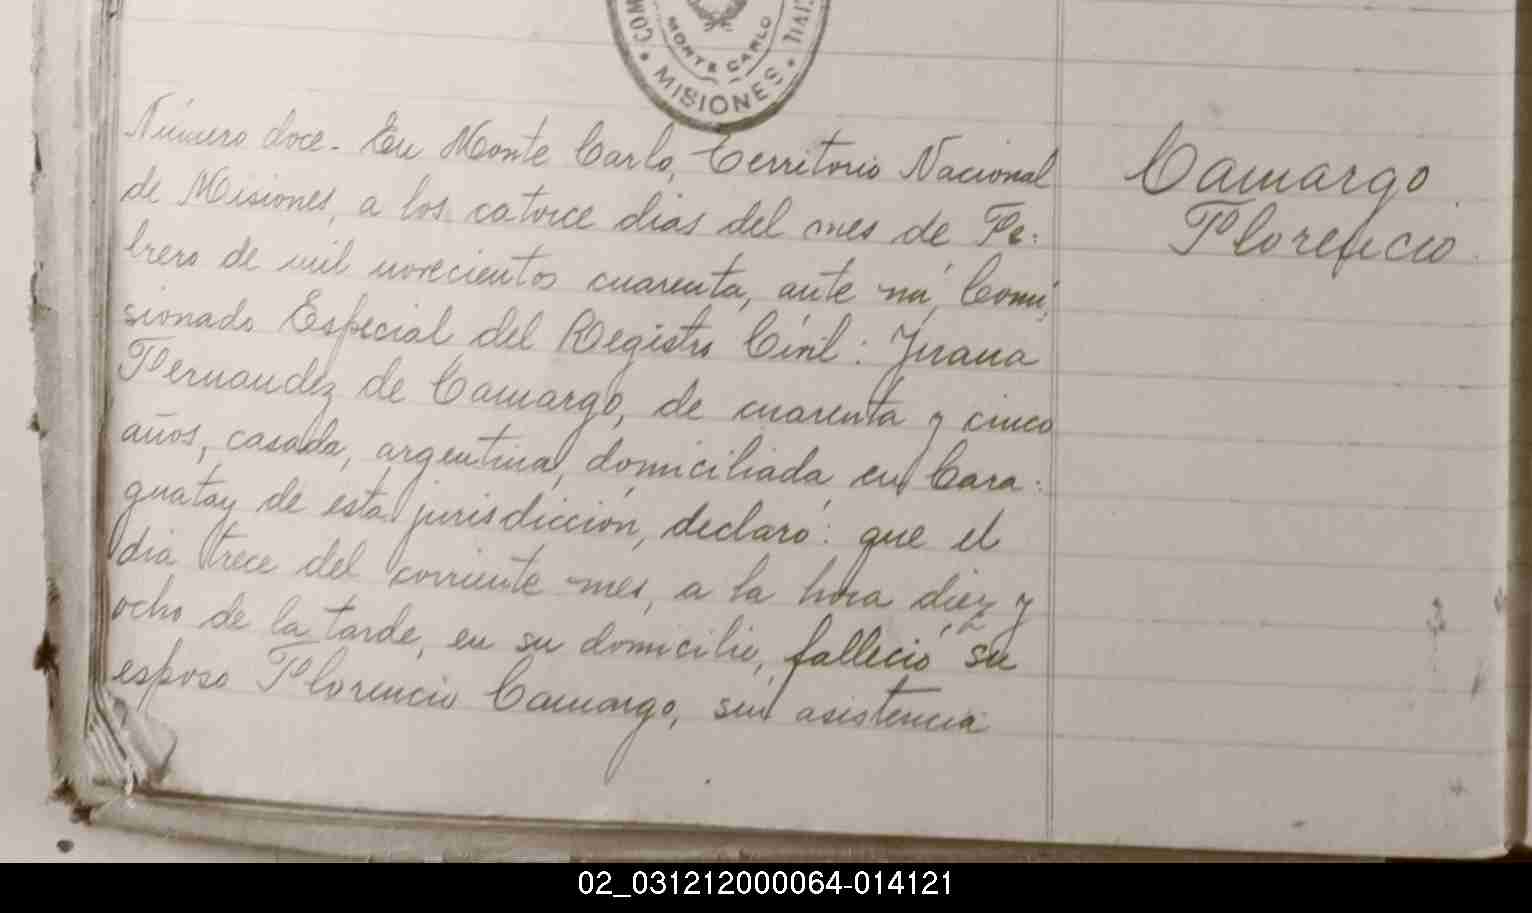 MONTE CARLO
MISIONES
Número doce. En Monte Carlo, Territorio Nacional
de Misiones, a los catorce dias del mes de Fe:
brero de mil novecientos cuarenta, ante mi, Comi,
sionado Especial del Registro Civil: Juana
Fernandez de Camargo, de cuarenta y cinco
años, casada, argentina, domiciliada en Cara:
guatay de esta jurisdicción, declaró: que el
dia trece del corriente mes, a la hora diez y
ocho de la tarde, en su domicilio, falleció su
esposo Florencio Camargo, sin asistencia
Camargo
Florencio
02_031212000064-014121